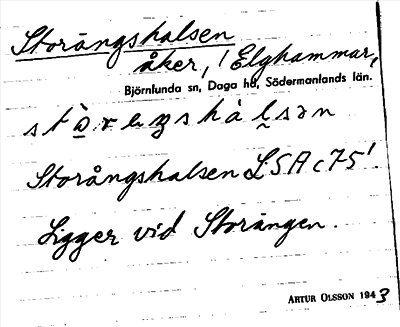 Storängshalsen
åker, / Elghammar,
Björnlunda sn, Daga hd, Södermanlands län.
Storångshalsen LSA c75'
Ligger vid Storängen.
ARTUR OLSSON 1943